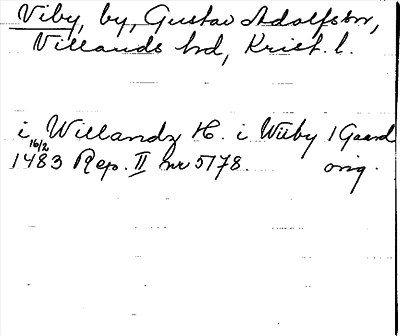 Viby, by, Gustav Adolfs sn,
Villands hd, Krist. l.
i Willandz H. i Wiby 1 Gaard
16/2
1483 Rep. II nr 5178. orig.